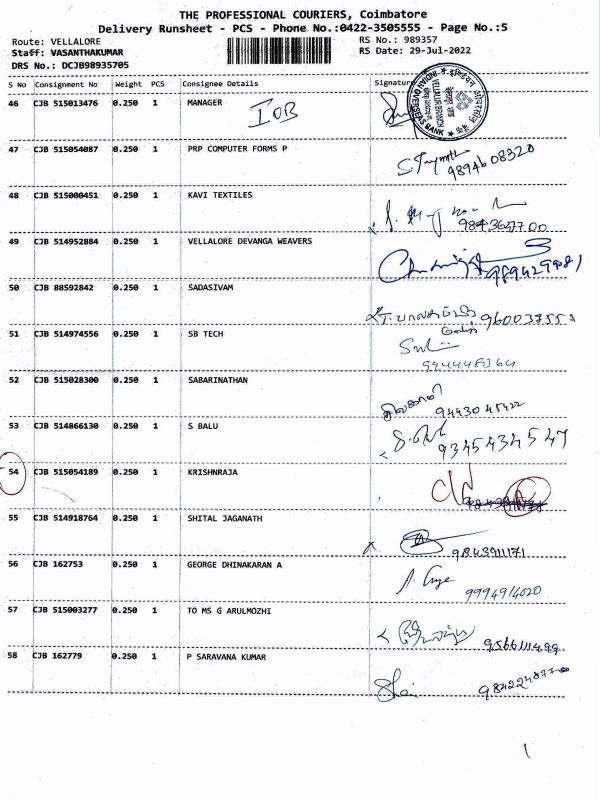 THE PROFESSIONAL COURIERS, Coimbatore
Delivery Runsheet - PCS - Phone No.:0422-3505555 - Page No.:5
Route: VELLALORE
RS No.: 989357
Staff: VASANTHAKUMAR
RS Date: 29-Jul-2022
DRS No.: DCJB98935705
S No Consignment No Weight PCS Consignee Details Signature
46 CJB 515013476 0.250 1 MANAGER IOB
INDIAN OVERSEAS BANK
VELLALUR BRANCH
47 CJB 515054087 0.250 1 PRP COMPUTER FORMS P 9894608320
48 CJB 515000451 0.250 1 KAVI TEXTILES 9843647700
49 CJB 514952884 0.250 1 VELLALORE DEVANGA WEAVERS
50 CJB 88592842 0.250 1 SADASIVAM
51 CJB 514974556 0.250 1 SB TECH
52 CJB 515028300 0.250 1 SABARINATHAN 9443045422
53 CJB 514866130 0.250 1 S BALU 9345434547
54 CJB 515054189 0.250 1 KRISHNRAJA
55 CJB 514918764 0.250 1 SHITAL JAGANATH 9843911171
56 CJB 162753 0.250 1 GEORGE DHINAKARAN A 9994914020
57 CJB 515003277 0.250 1 TO MS G ARULMOZHI 9566111499
58 CJB 162779 0.250 1 P SARAVANA KUMAR
1